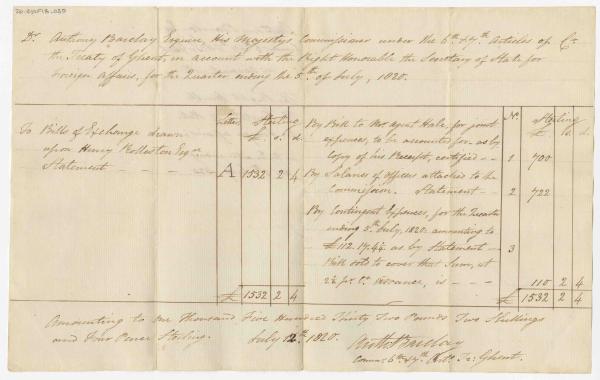 Dr. Anthony Barclay Esquire, His Majesty's Commissioner under the 6th & 7th Articles of Cr.
the Treaty of Ghent, in account with the Right Honorable the Secretary of State for
Foreign Affairs, for the Quarter ending the 5th of July, 1820.
Letter Sterling £ s. d.
To Bills of Exchange drawn
upon Henry Rolleston Esqre
Statement - - - - A 1532 2 4
£ 1532 2 4
No. Sterling £ s. d.
By Bill to Agent Hale for joint
expenses, to be accounted for - as by
Copy of his Receipt, certified - - 1 700
By Salaries of Officers attached to the
Commission. Statement - - 2 722
By Contingent Expences, for the Quarter
ending 5th July, 1820. amounting to
£112.17.4½ as by Statement - 3
Bill sold to cover that Sum, at
2½ pr. Ct. advance, is - - - 110 2 4
£ 1532 2 4
Amounting to One Thousand Five Hundred Thirty Two Pounds Two Shillings
and Four Pence Sterling. July 12th 1820.
Anth Barclay
Commr. 6th & 7th Arts. Tr: Ghent.